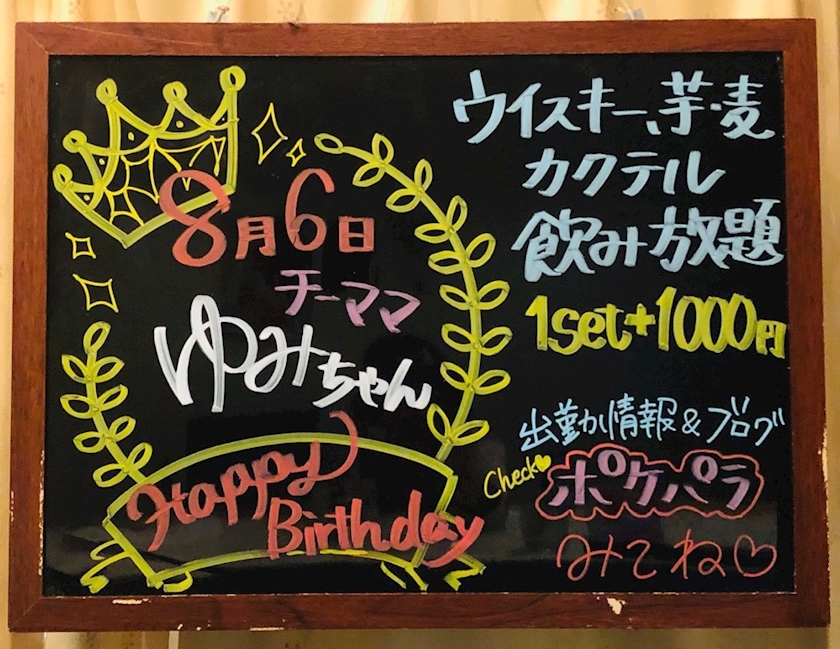 8月6日
チーママ
ゆみちゃん
Happy
Birthday
ウイスキー、芋・麦
カクテル
飲み放題
1set+1000円
出勤情報&ブログ
Check
ポケパラ
みてね